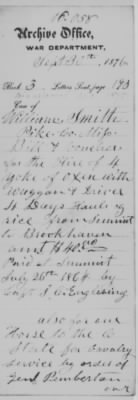 16.058
Archive Office,
WAR DEPARTMENT,
Sept 30th, 1876
Book 3, Letters Sent, page 193
Case of
William Smith
Pike Co Miss
Bill & voucher
for the Hire of 4
yoke of oxen with
Waggon & Driver
4 Days Hauling
rice from Summit
to Brookhaven
amt $40.00
Paid at Summit
July 26th 1864 by
Capt
also for one
Horse to the C
State for Cavalry
service by order of
Genl Pemberton
over